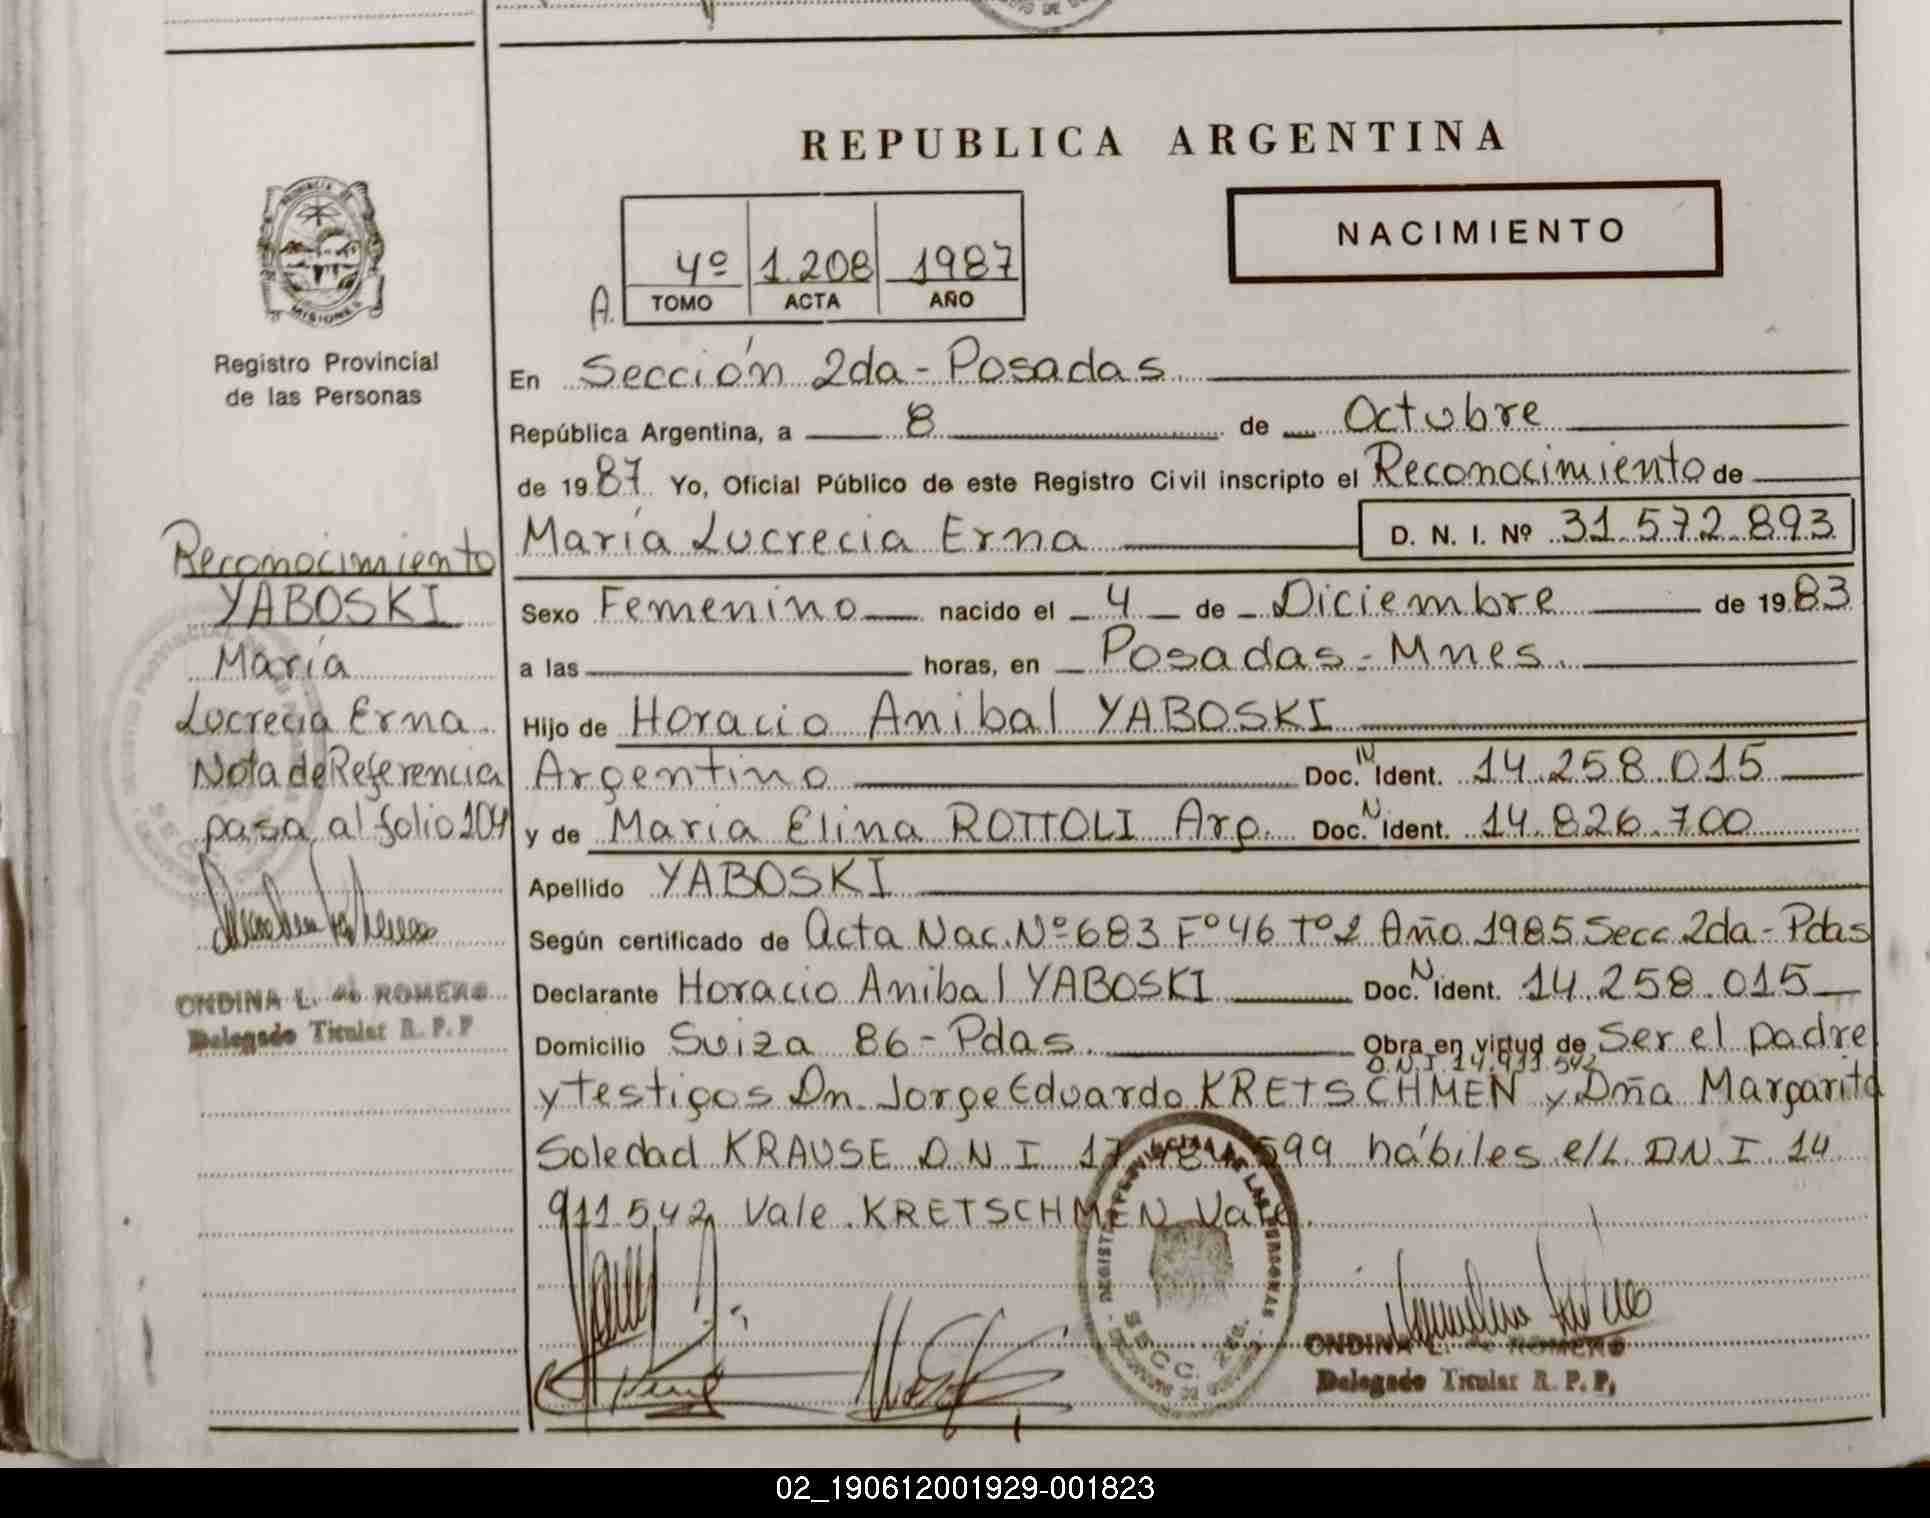 REPUBLICA ARGENTINA
NACIMIENTO
4º 1.208 1987
A. TOMO ACTA AÑO
PROVINCIA
MISIONES
Registro Provincial
de las Personas
En Sección 2da - Posadas
República Argentina, a 8 de Octubre
de 1987 Yo, Oficial Público de este Registro Civil inscripto el Reconocimiento de
María Lucrecia Erna D. N. I. Nº 31.572.893
Sexo Femenino nacido el 4 de Diciembre de 1983
a las horas, en Posadas - Mnes.
Hijo de Horacio Anibal YABOSKI
Argentino Doc. N Ident. 14.258.015
y de Maria Elina ROTTOLI Arg. Doc. N Ident. 14.826.700
Apellido YABOSKI
Según certificado de Acta Nac. Nº 683 Fº 46 Tº 2 Año 1985 Secc 2da - Pdas
Declarante Horacio Anibal YABOSKI Doc. N Ident. 14.258.015
Domicilio Suiza 86 - Pdas. Obra en virtud de Ser el padre
D.N.I. 14.911.542
y testigos Dn. Jorge Eduardo KRETSCHMEN y Dña Margarita
Soledad KRAUSE D.N.I. 599 hábiles e/L. D.N.I. 14
911.542 Vale. KRETSCHMEN Vale.
Reconocimiento
YABOSKI
María
Lucrecia Erna.
Nota de Referencia
pasa al folio 104
ONDINA L. de ROMERO
Delegado Titular R. P. P
SECC. 2da.
ONDINA L. de ROMERO
Delegado Titular R. P. P.
02_190612001929-001823